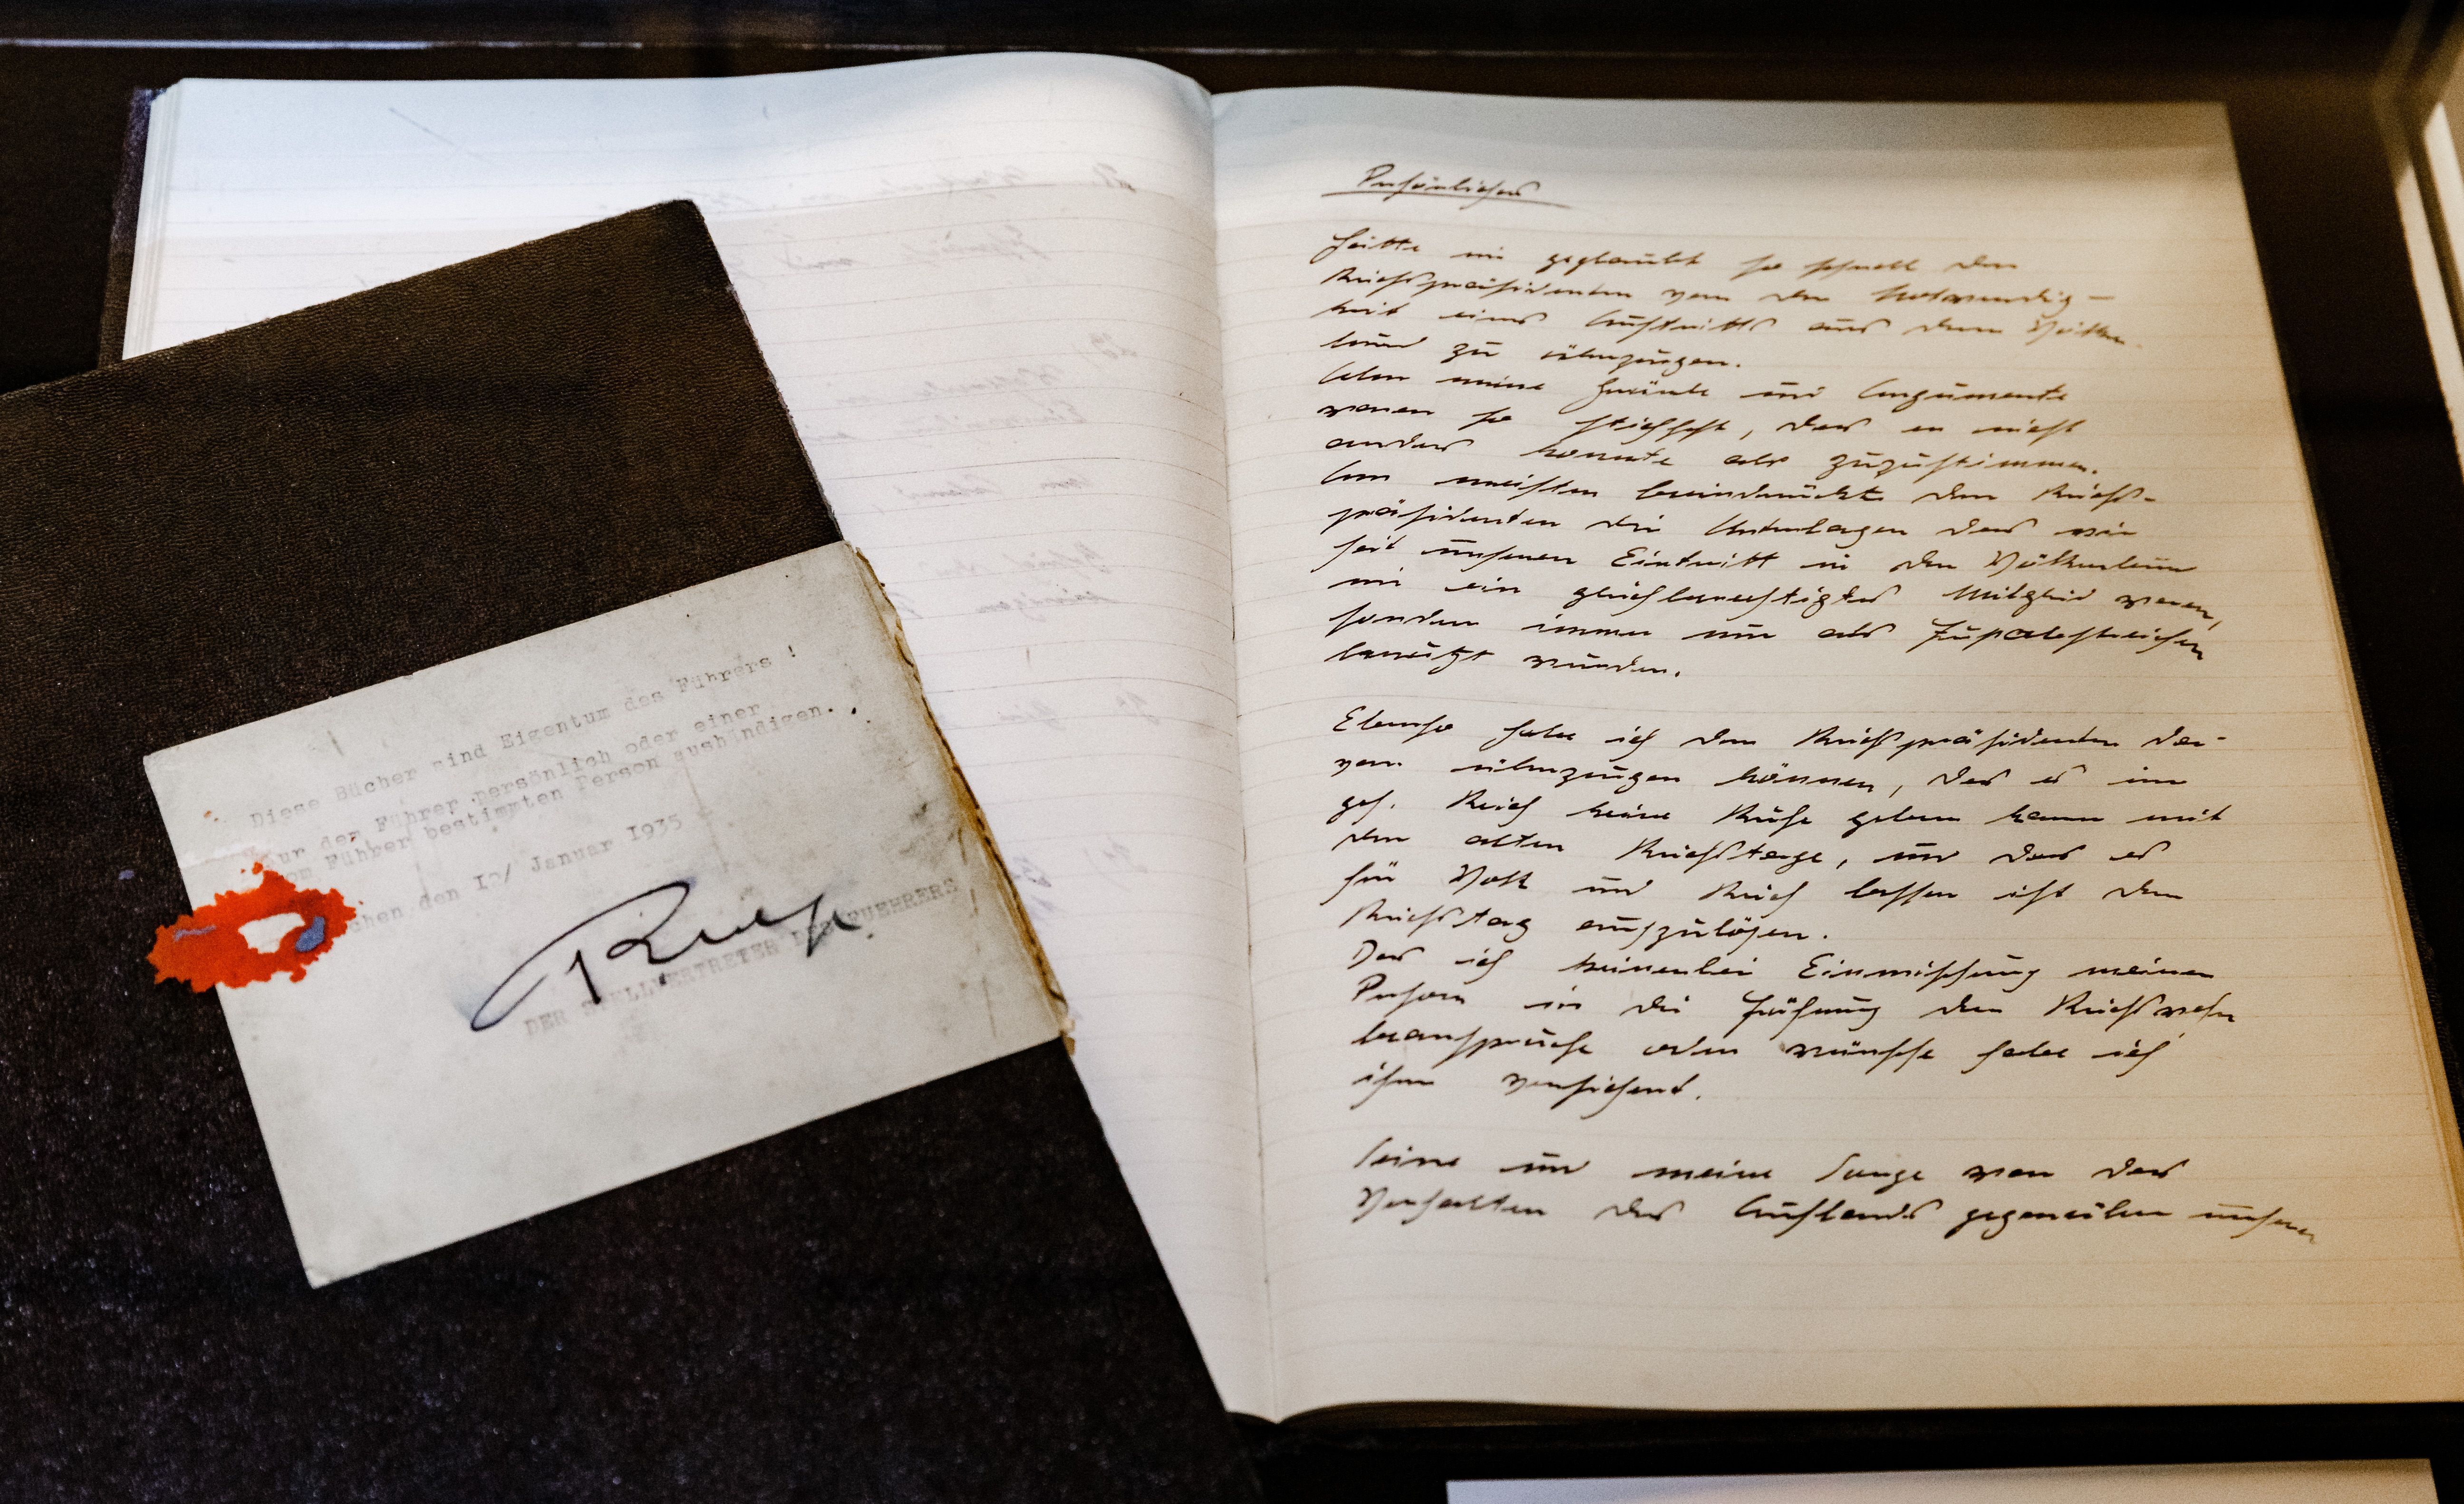 Diese Bücher sind Eigentum des Führers !
Nur dem Führer persönlich oder einer
vom Führer bestimmten Person aushändigen.
chen den Januar 1935
DER STELLVERTRETER DES FUEHRERS
Persönliches
Hätte nie geglaubt so schnell den
Reichspräsidenten von der Notwendig-
keit eines Austritts aus dem Völker-
bund zu überzeugen.
Aber meine Gründe und Argumente
waren so stichfest, das er nicht
anders konnte als zuzustimmen.
Am meisten beeindruckte den Reichs-
präsidenten die Unterlagen das wir
seit unseren Eintritt in den Völkerbund
nie ein gleichberechtigtes Mitglied waren,
sondern immer nur als Fußabstreicher
benützt wurden.
Ebenso habe ich den Reichspräsidenten da-
von überzeugen können, das es im
ges. Reich keine Ruhe geben kann mit
dem alten Reichstage, und das es
für Volk und Reich besser ist den
Reichstag aufzulösen.
Das ich keinerlei Einmischung meiner
Person in die Führung der Reichswehr
beanspruche oder wünsche habe ich
ihm versichert.
Seine und meine Sorge war das
Verhalten des Auslands gegenüber unserer